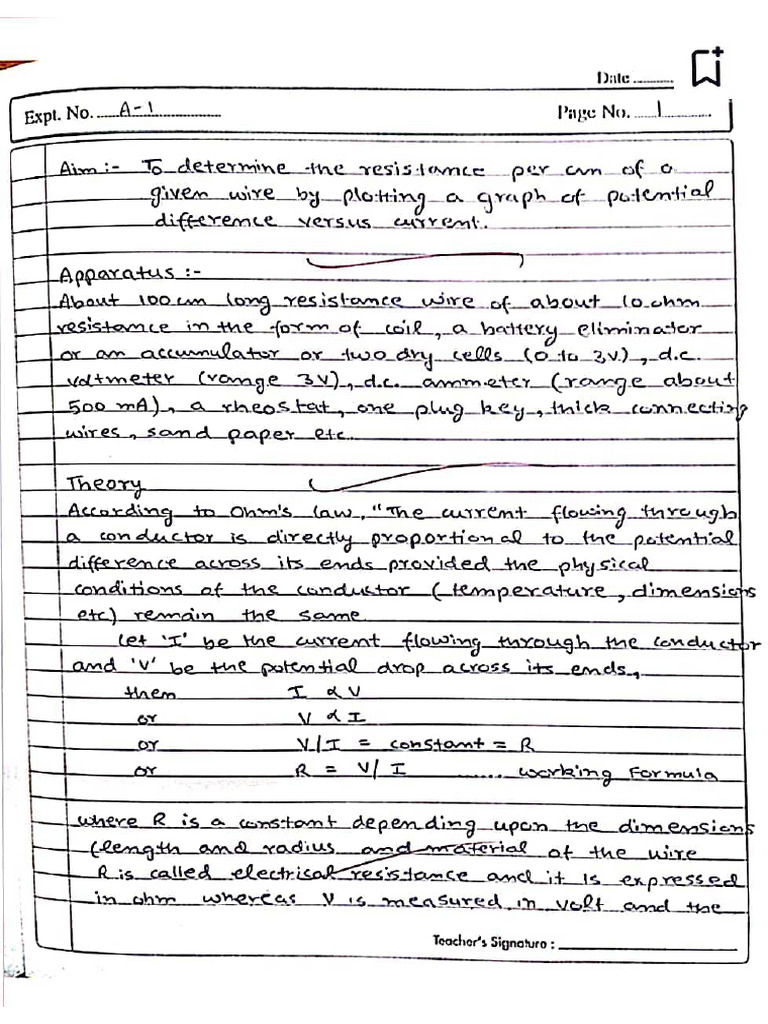 Date ............
Expt. No. ......A-1..................
Page No. .....1..............
Aim :- To determine the resistance per cm of a
given wire by plotting a graph of potential
difference versus current.
Apparatus :-
About 100 cm long resistance wire of about 10 ohm
resistance in the form of coil, a battery eliminator
or an accumulator or two dry cells (0 to 3v), d.c.
voltmeter (range 3v), d.c. ammeter (range about
500 mA), a rheostat, one plug key, thick connecting
wires, sand paper etc.
Theory
According to Ohm's law, "The current flowing through
a conductor is directly proportional to the potential
difference across its ends provided the physical
conditions of the conductor (temperature, dimensions
etc) remain the same.
Let 'I' be the current flowing through the conductor
and 'V' be the potential drop across its ends,
then I ∝ V
or V ∝ I
or V/I = constant = R
or R = V/I ....... working Formula
where R is a constant depending upon the dimensions
(length and radius and material of the wire
R is called electrical resistance and it is expressed
in ohm whereas V is measured in volt and the
Teacher's Signature :